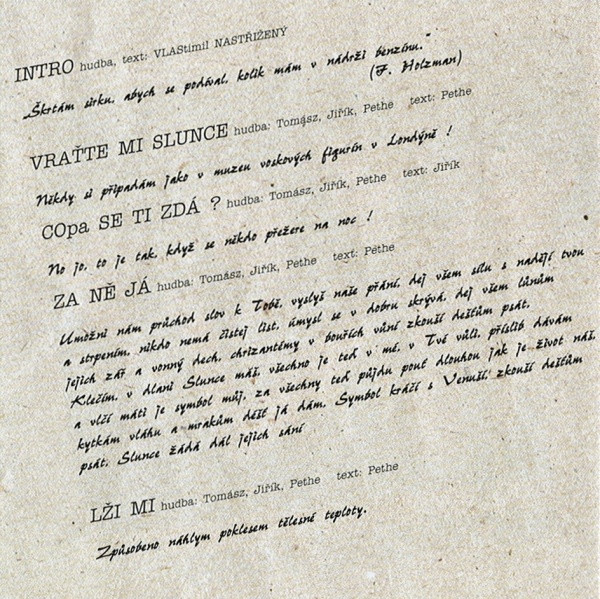 INTRO hudba, text: VLAStimil NASTŘIŽENÝ
„Škrtám sirku, abych se podíval, kolik mám v nádrži benzínu."
(F. Holzman)
VRAŤTE MI SLUNCE hudba: Tomász, Jiřík, Pethe text: Pethe
Někdy si připadám jako v muzeu voskových figurín v Londýně !
COpa SE TI ZDÁ ? hudba: Tomász, Jiřík, Pethe text: Jiřík
No jo, to je tak, když se někdo přežere na noc !
ZA NĚ JÁ hudba: Tomász, Jiřík, Pethe text: Pethe
Umožni nám průchod slov k Tobě, vyslyš naše přání, dej všem sílu s nadějí tvou
a strpením, nikdo nemá čistej list, úmysl se v dobru skrývá, dej všem lůnům
jejich zář a vonný dech, chrizantémy v bouřích vůní zkouší dešťům psát.
Klečím, v dlani Slunce máš, všechno je teď v mé, v Tvé vůli, příslib dávám
a vlčí máti je symbol můj, za všechny teď půjdu pouť dlouhou jak je život náš,
kytkám vláhu a mrakům déšť já dám. Symbol kráčí s Venuší, zkouší dešťům
psát, Slunce žádá dál jejich sání
LŽI MI hudba: Tomász, Jiřík, Pethe text: Pethe
Způsobeno náhlym poklesem tělesné teploty.